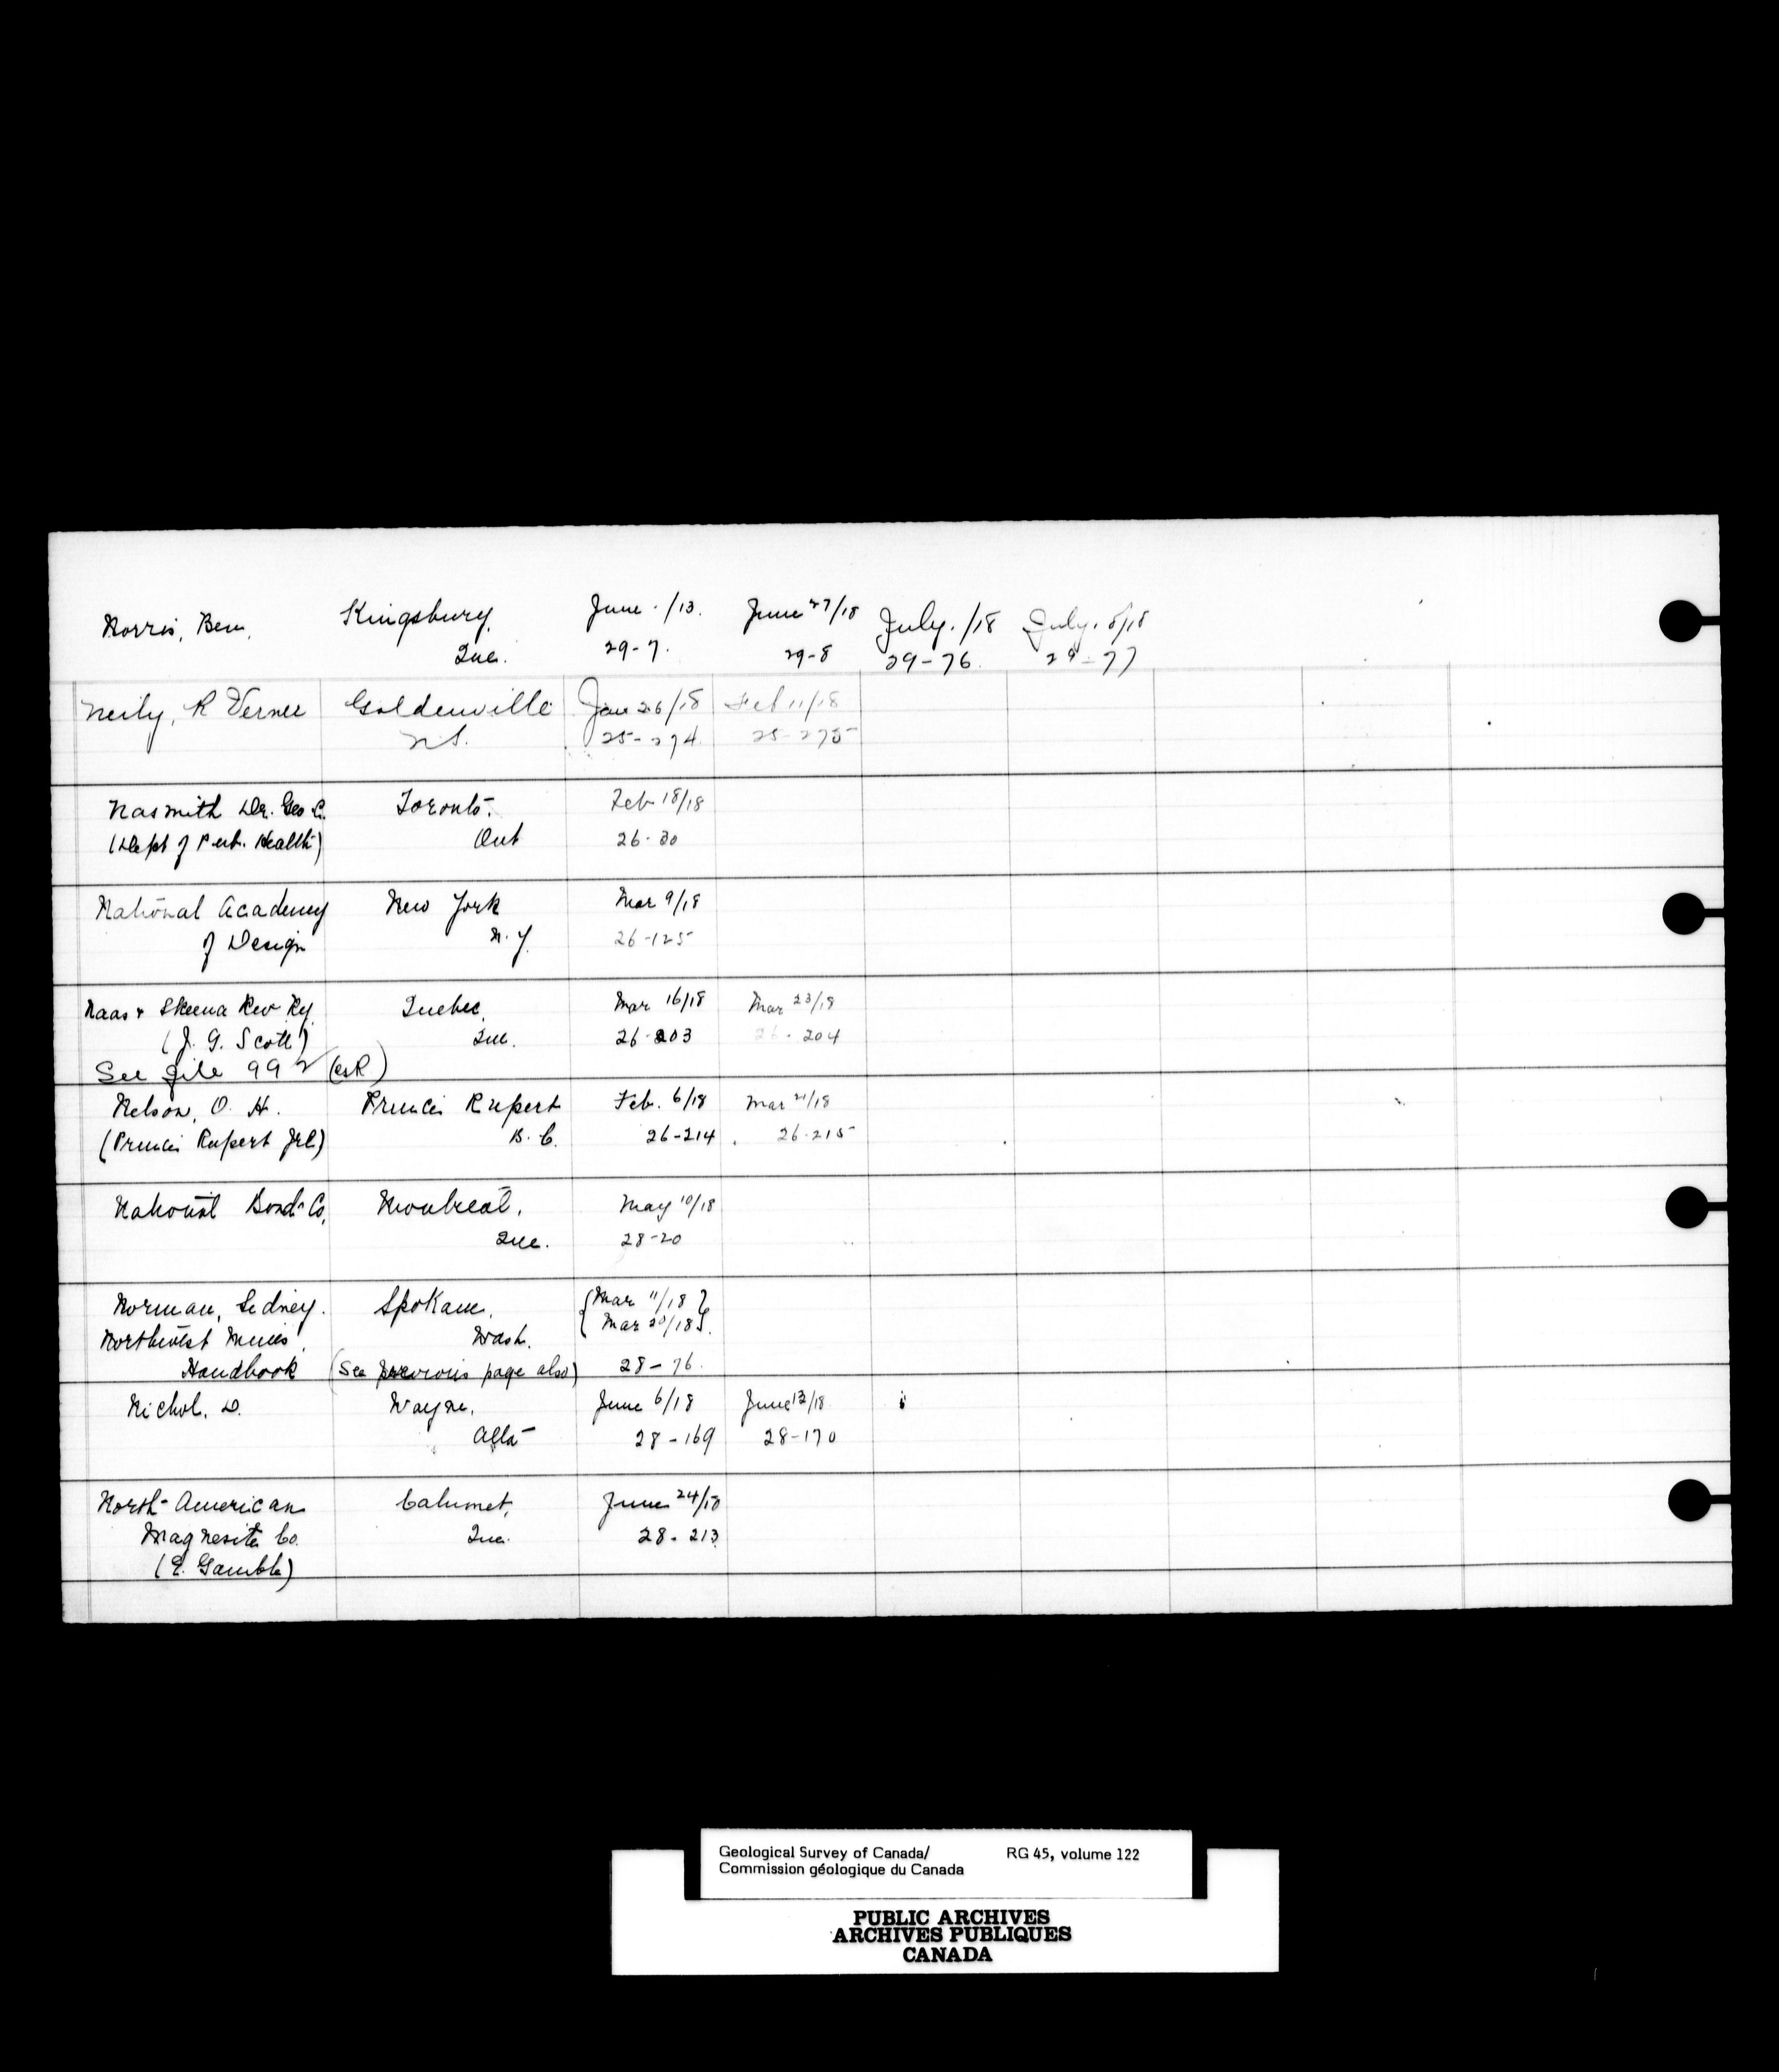 Norris, Ben. Kingsbury, Que. June - /13. 29-7. June 27/18 29-8 July. /18 29-76. July. 8/18 29-77
Neily, R Verner Goldenville N.S. Jan 26/18 25-274 Feb 11/18 25-275
Nasmith Dr. Geo G. (Dept of Pub. Health) Toronto. Ont Feb 18/18 26-30
National Academy of Design New York N.Y. Mar 9/18 26-125
Naas & Skeena Riv Ry. (J. G. Scott) Quebec, Que. Mar 16/18 26-203 Mar 23/18 26-204
See file 992 (CSR)
Nelson, O. H. (Prince Rupert Jrl) Prince Rupert B.C. Feb. 6/18 26-214 Mar 21/18 26-215
National Bond Co. Montreal, Que. May 10/18 28-20
Norman, Sidney. Northwest Mines Handbook Spokane, Wash. (See previous page also) {Mar 11/18 Mar 20/18}. 28-76.
Nichol. D. Wayne, Alta June 6/18 28-169 June 12/18 28-170
North American Magnesite Co. (E. Gamble) Calumet, Que. June 24/18 28-213
Geological Survey of Canada/ RG 45, volume 122
Commission géologique du Canada
PUBLIC ARCHIVES
ARCHIVES PUBLIQUES
CANADA